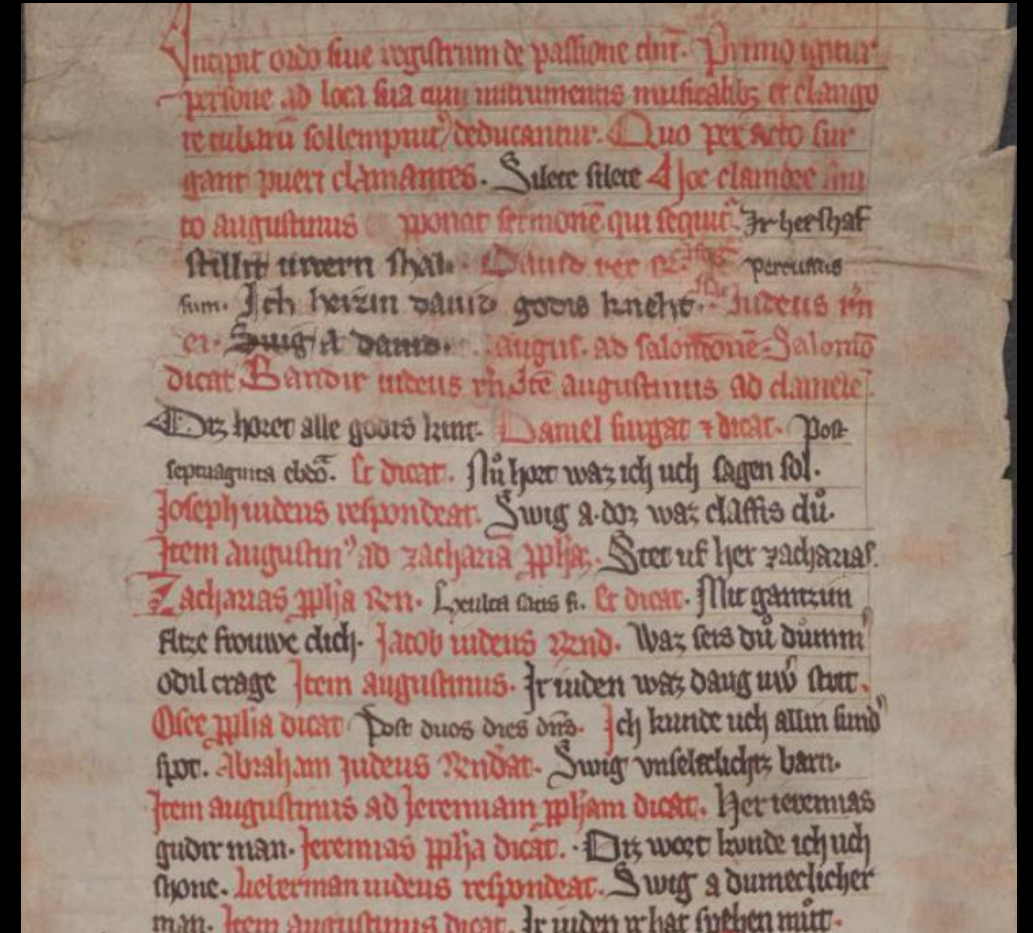 Incipit ordo siue registrum de passione dni. Primo igitur
persone ad loca sua cum instrumentis musicalibz et clango
re tubarū sollempnit deducantur. Quo peracto sur
gant pueri clamantes. Silete silete Hoc clamore fini
to augustinus ponat sermonē qui sequit. Ir herschaf
stillir uwern shal. Dauid rex percussus
sum. Ich heizin dauid godis kneht. Iudeus rn
ei. Swig a dauid. augus. ad salomonē. Salomō
dicat Bandir iudeus rn. Itē augustinus ad danielē.
Diz horet alle godis kint. Daniel surgat ⁊ dicat. Post
septuaginta ebdo. Et dicat. Nů hort waz ich uch sagen sol.
Joseph iudeus respondeat. Swig a. doz waz claffis dů.
Item augustin ad zachariā pph̄a. Stet uf her zacharias.
Zacharias pph̄a Rn. Exulta satis fi. Et dicat. Mit gantzim
flize frouwe dich. Jacob iudeus Rnd. Waz seis dů dummir
odil crage Item augustinus. Ir iuden waz daug uw strit.
Osee pph̄ia dicat Post duos dies dns. Ich kunde uch allin sund
spot. Abraham Judeus Rndat. Swig vnseleclichz barn.
Item augustinus ad Jeremiam pph̄am dicat. Her ieremias
gudir man. Jeremias pph̄a dicat. Diz wort kunde ich uch
shone. lieberman iudeus respondeat. Swig a dumeclicher
man. Item augustinus dicat. Ir iuden ir hat spehen můt.